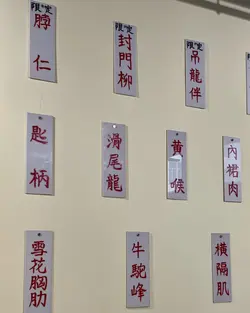 限定
脖仁
限定
封門柳
限定
吊龍伴
匙柄
滑尾龍
黃喉
內裙肉
雪花胸肋
牛駝峰
橫隔肌